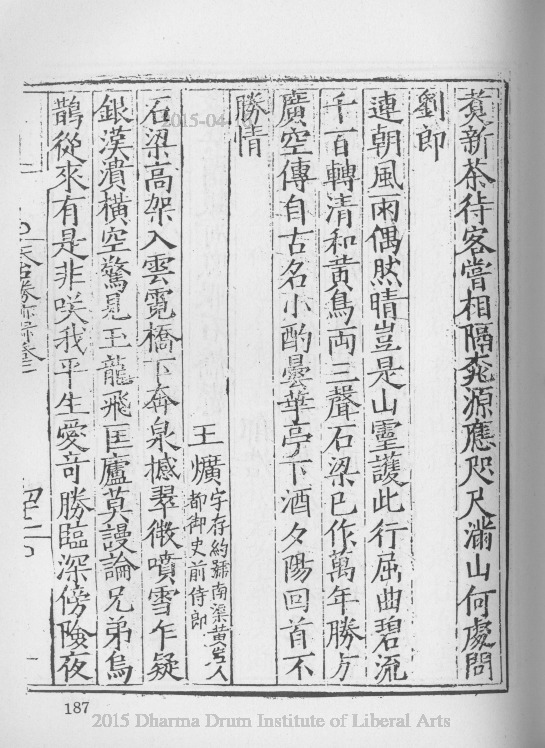 煑新茶待客嘗相隔桃源應咫尺滿山何處問
劉郎
連朝風雨偶然晴豈是山靈護此行屈曲碧流
千百轉清和黄鳥両三聲石梁已作萬年勝方
廣空傳自古名小酌曇華亭下酒夕陽回首不
勝情
王爌字存約號南渠黄岩人
都御史前侍郎
石梁高架入雲霓橋下奔泉撼翠微噴雪乍疑
銀漢瀆橫空驚見玉龍飛匡廬莫謾論兄弟烏
鵲從來有是非咲我平生愛奇勝臨深傍險夜
天台勝亦錄卷二
187
2015-04
2015 Dharma Drum Institute of Liberal Arts